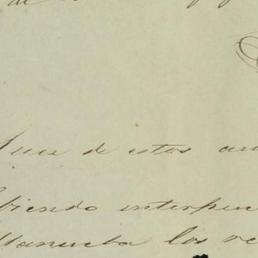 de
Juez de estos au
biendo interpu
Manuela los re